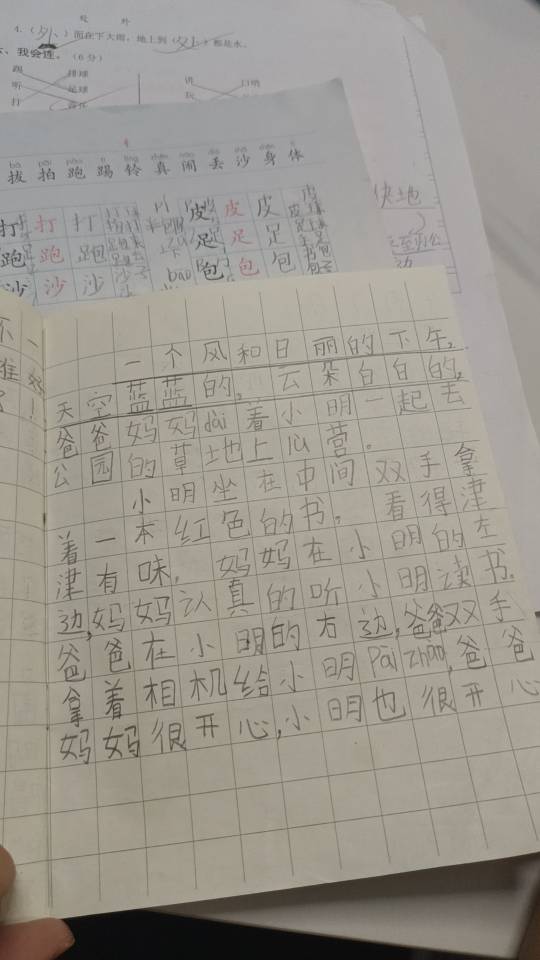 4.(外)面在下大雨,地上到(处)都是水。
、我会连。(6分)
踢 排球
听 足球
打 音乐
讲
玩
拔 拍 跑 踢 铃 真 闹 丢 沙 身 体
打 打 打 皮 皮 皮
跑 跑 跑 足 足 足
沙 沙 沙 bao 包 包 包
快地
边
一个风和日丽的下午,
天空蓝蓝的,云朵白白的,
爸爸妈妈dài着小明一起去
公园的草地上
营。
小明坐在中间 双手拿
着一本红色的书, 看得津
津有味, 妈妈在小明的左
边,妈妈认真的听小明读书。
爸爸在小明的右边,爸爸双手
拿着相机给小明Pāi zhào,爸爸
妈妈很开心,小明也很开心